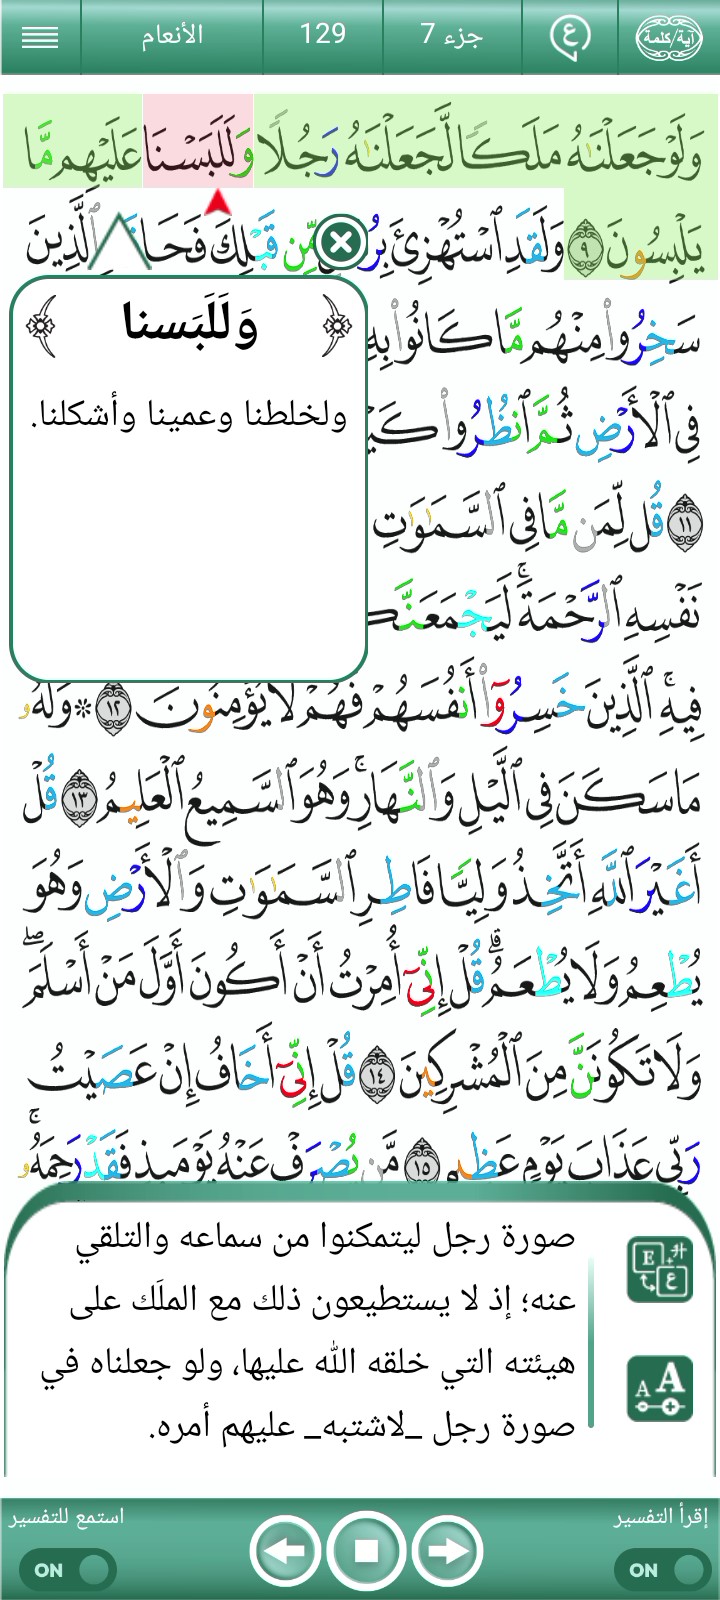 آية/كلمة
ع
جزء 7
129
الأنعام
وَلَوْ جَعَلْنَٰهُ مَلَكًا لَّجَعَلْنَٰهُ رَجُلًا وَلَلَبَسْنَا عَلَيْهِم مَّا
يَلْبِسُونَ ٩ وَلَقَدِ ٱسْتُهْزِئَ مِّن قَبْلِكَ ٱلَّذِينَ
سَخِرُوا۟ مِنْهُم مَّا كَانُوا۟ بِهِ
فِى ٱلْأَرْضِ ثُمَّ ٱنظُرُوا۟
١١ قُل لِّمَن مَّا فِى ٱلسَّمَٰوَٰتِ
نَفْسِهِ ٱلرَّحْمَةَ ۚ
فِيهِ ۚ ٱلَّذِينَ خَسِرُوٓا۟ أَنفُسَهُمْ فَهُمْ لَا يُؤْمِنُونَ ١٢ ۞ وَلَهُۥ
مَا سَكَنَ فِى ٱلَّيْلِ وَٱلنَّهَارِ ۚ وَهُوَ ٱلسَّمِيعُ ٱلْعَلِيمُ ١٣ قُلْ
أَغَيْرَ ٱللَّهِ أَتَّخِذُ وَلِيًّا فَاطِرِ ٱلسَّمَٰوَٰتِ وَٱلْأَرْضِ وَهُوَ
يُطْعِمُ وَلَا يُطْعَمُ ۗ قُلْ إِنِّىٓ أُمِرْتُ أَنْ أَكُونَ أَوَّلَ مَنْ أَسْلَمَ ۖ
وَلَا تَكُونَنَّ مِنَ ٱلْمُشْرِكِينَ ١٤ قُلْ إِنِّىٓ أَخَافُ إِنْ عَصَيْتُ
رَبِّى عَذَابَ يَوْمٍ عَظِيمٍ ١٥ مَّن يُصْرَفْ عَنْهُ يَوْمَئِذٍ فَقَدْ رَحِمَهُۥ ۚ
وَلَلَبَسنا
ولخلطنا وعمينا وأشكلنا.
صورة رجل ليتمكنوا من سماعه والتلقي
عنه؛ إذ لا يستطيعون ذلك مع الملَك على
هيئته التي خلقه الله عليها، ولو جعلناه في
صورة رجل _لاشتبه_ عليهم أمره.
إقرأ التفسير
استمع للتفسير
ON
ON